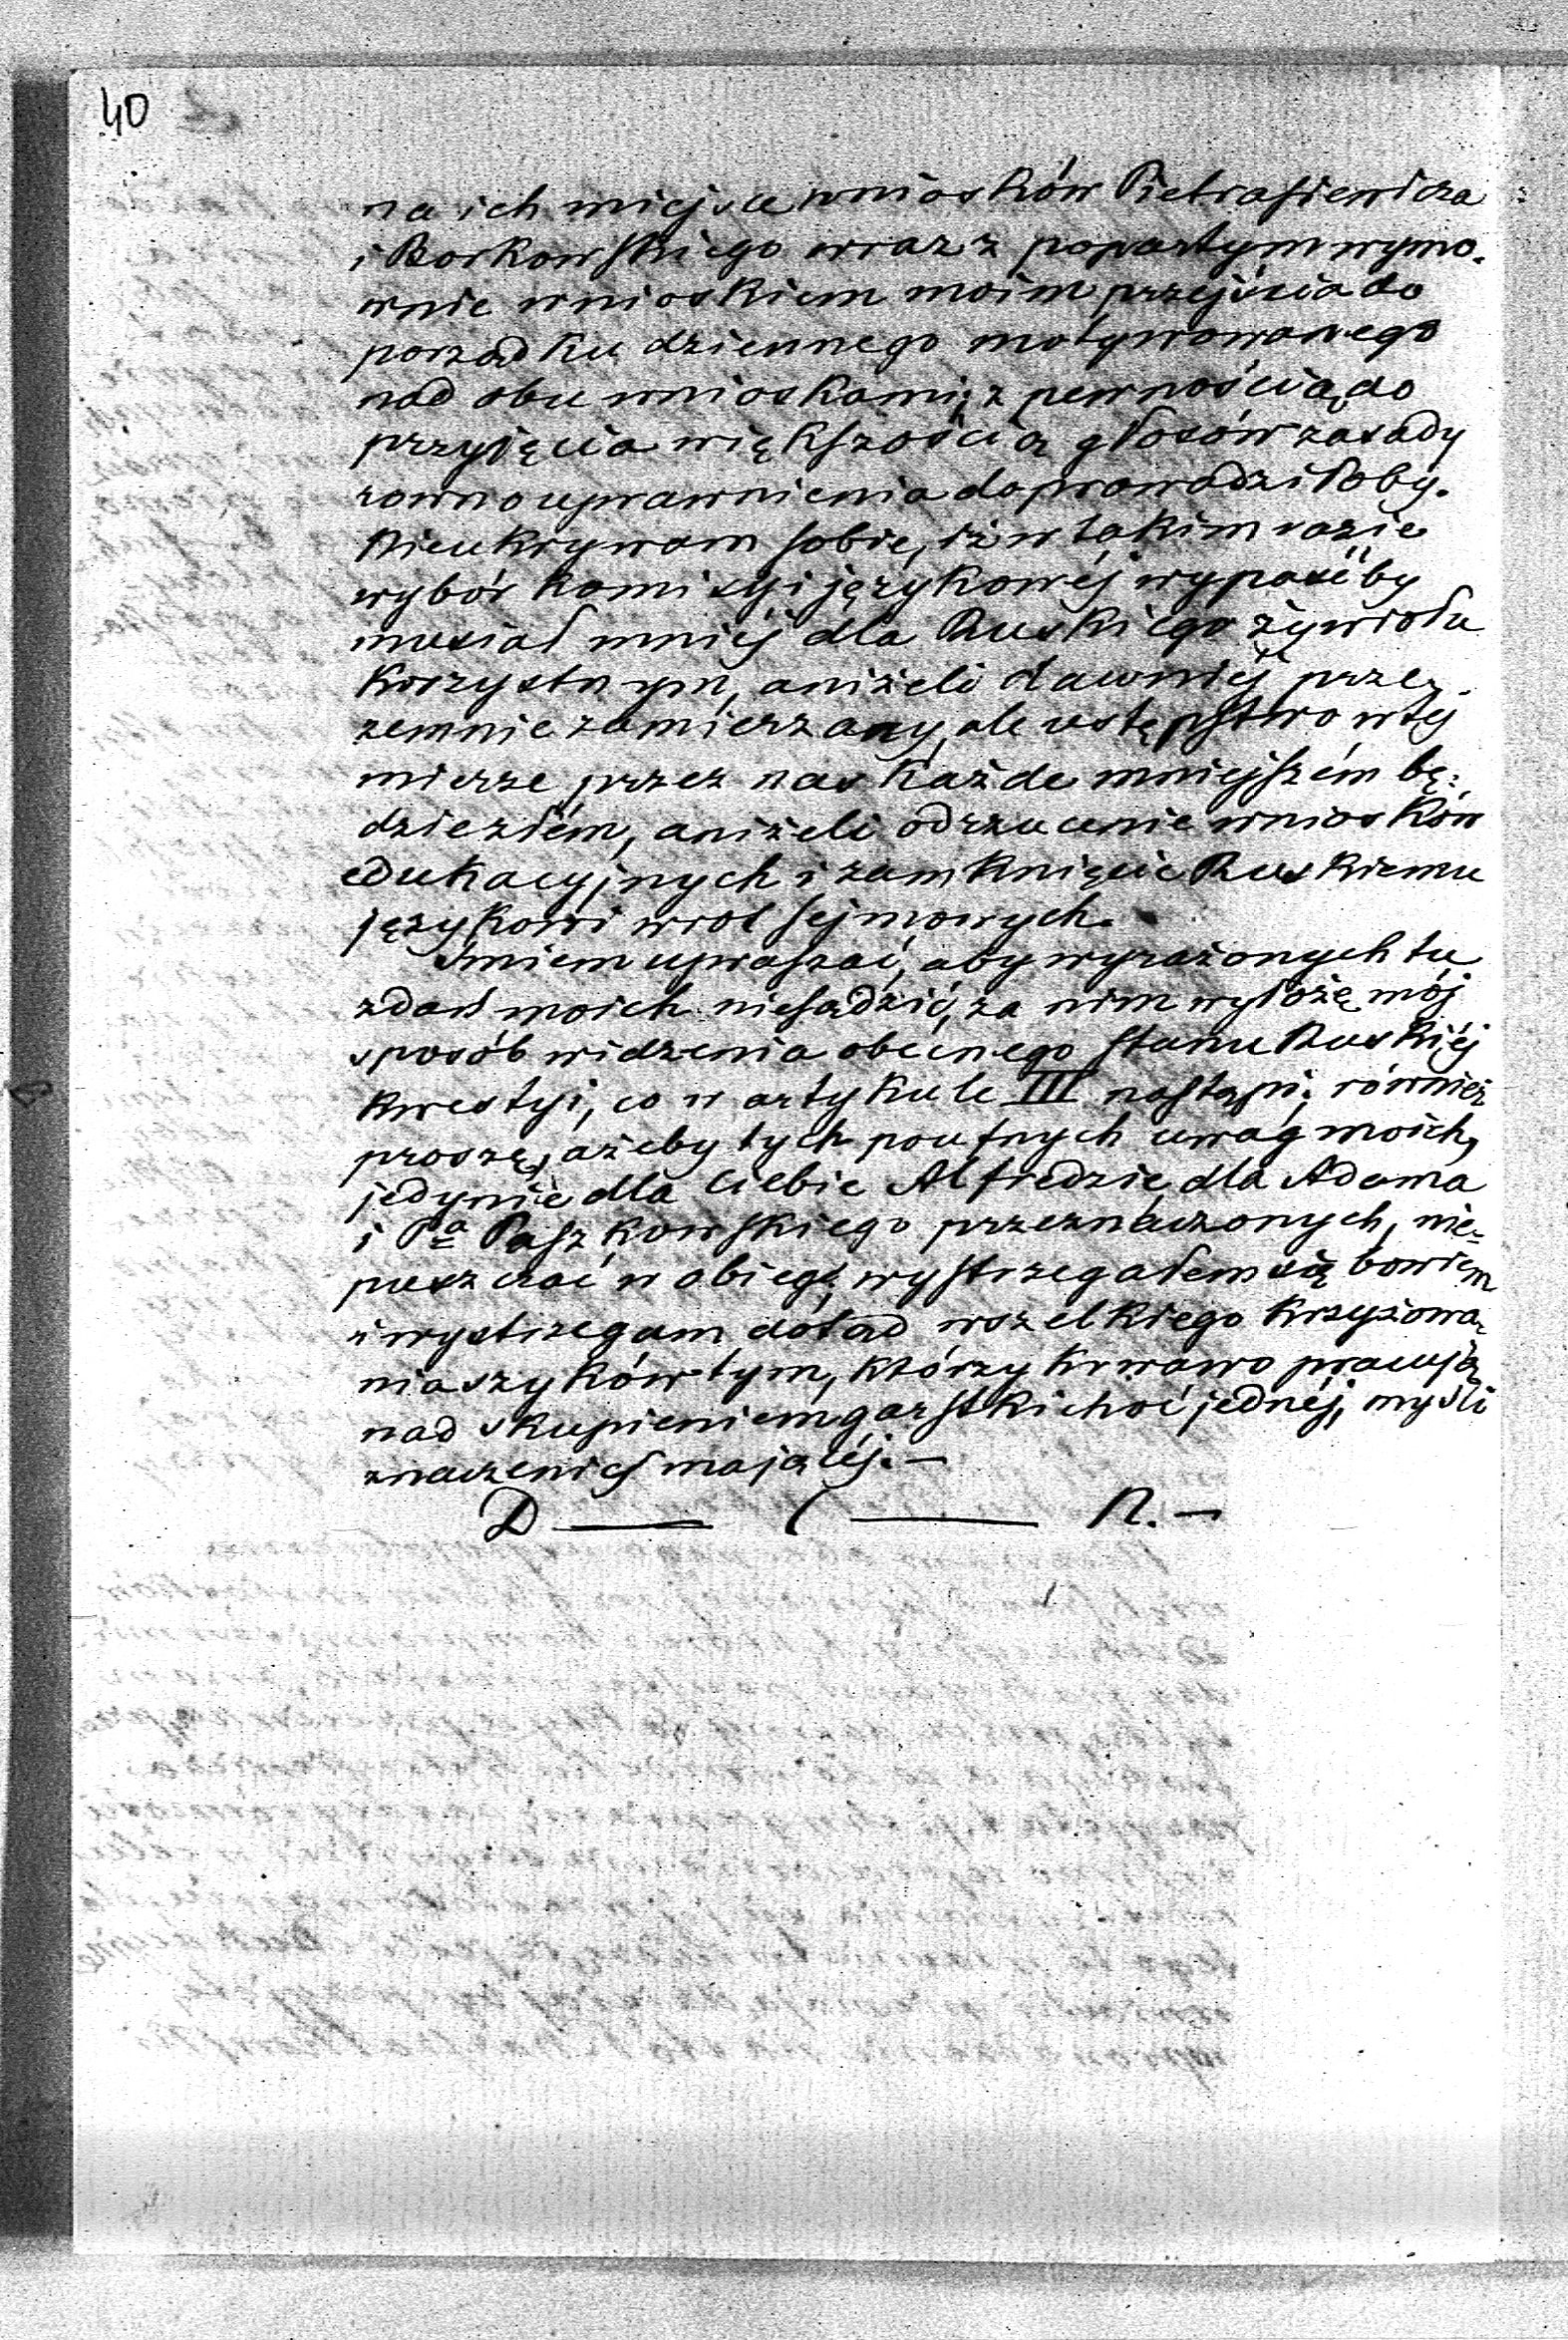 40
na ich miejsce wniosków Pietrasiewicza
i Borkowskiego wraz z popartym wymo-
wnie wnioskiem moim przejścia do
porządku dziennego motywowanego
nad obu wnioskami, z pewnością do
przyjęcia większością głosów zasady
rownouprawnienia doprowadziłoby.
Nieukrywam sobie, iż w takim razie
wybór komisyi językowéj wypaść by
musiał mniéj dla Ruskiego żywiołu
korzystnym, aniżeli dawniéj prze-
zemnie zamierzany, ale ustępstwo w téj
mierze przez nas każde mniejszém bę-
dzie złém, aniżeli odrzucenie wniosków
edukacyjnych i zamknięcie Ruskiemu
językowi wrot sejmowych.
Śmiem upraszać, aby wyrażonych tu
zdań moich niesądzić, za nim wyłożę mój
sposób widzenia obecnego stanu Ruskiéj
kwestyi, co w artykule III nastąpi; również
proszę, ażeby tych poufnych uwag moich,
jedynie dla Ciebie Alfredzie, dla Adama
i Pa Paszkowskiego przeznaczonych, nie-
puszczać w obieg; wystrzegałem się bowiem
i wystrzegam dotąd wszelkiego krzyżowa-
nia szyków tym, którzy krwawo pracują
nad skupieniem garstki choć jednéj, myśli
znaczenie mającéj. —
D — ( — N. —